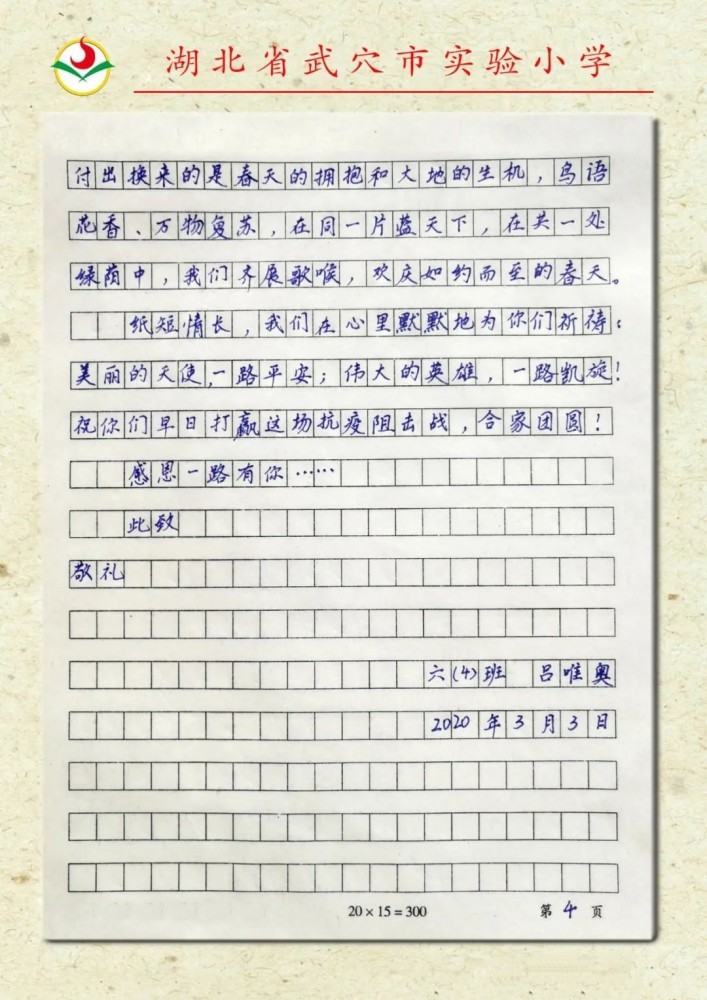 湖北省武穴市实验小学
付出换来的是春天的拥抱和大地的生机，鸟语
花香、万物复苏，在同一片蓝天下，在共一处
绿荫中，我们齐展歌喉，欢庆如约而至的春天。
纸短情长，我们在心里默默地为你们祈祷：
美丽的天使，一路平安；伟大的英雄，一路凯旋！
祝你们早日打赢这场抗疫阻击战，合家团圆！
感恩一路有你……
此致
敬礼
六(4)班 吕唯奥
2020年3月3日
20×15=300 第4页